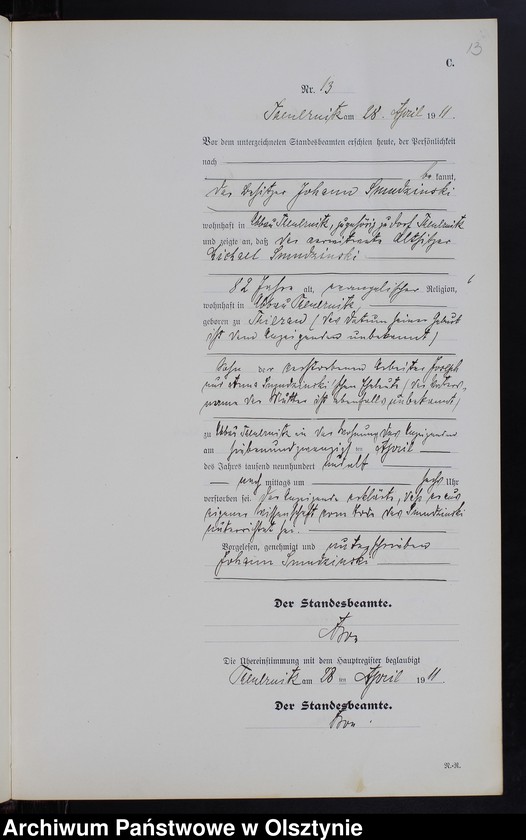 13
C.
Nr. 13
am 28. April 1911.
Vor dem unterzeichneten Standesbeamten erschien heute, der Persönlichkeit
nach
be kannt,
der Besitzer Johann Smudzinski
wohnhaft in Abbau, zugehörig zu Dorf
und zeigte an, daß der Altsitzer
Michael Smudzinski
82 Jahre alt, evangelischer Religion,
wohnhaft in Abbau
geboren zu Thierau (das Datum seiner Geburt
ist dem Anzeigenden unbekannt)
Sohn der verstorbenen Arbeiter Joseph
und Anna Smudzinski'schen Eheleute (der Vaters-
name der Mutter ist ebenfalls unbekannt)
zu Abbau in der Wohnung des Anzeigenden
am siebenundzwanzigsten April
des Jahrs tausend neunhundert und elf
nach mittags um sechs Uhr
verstorben sei. Der Anzeigende erklärte, daß er aus
eigener Wissenschaft vom Tode des Smudzinski
unterrichtet sei.
Vorgelesen, genehmigt und unterschrieben
Johann Smudzinski
Der Standesbeamte.
Die Übereinstimmung mit dem Hauptregister beglaubigt
am 28 ten April 1911
Der Standesbeamte.
R.-R.
Archiwum Państwowe w Olsztynie